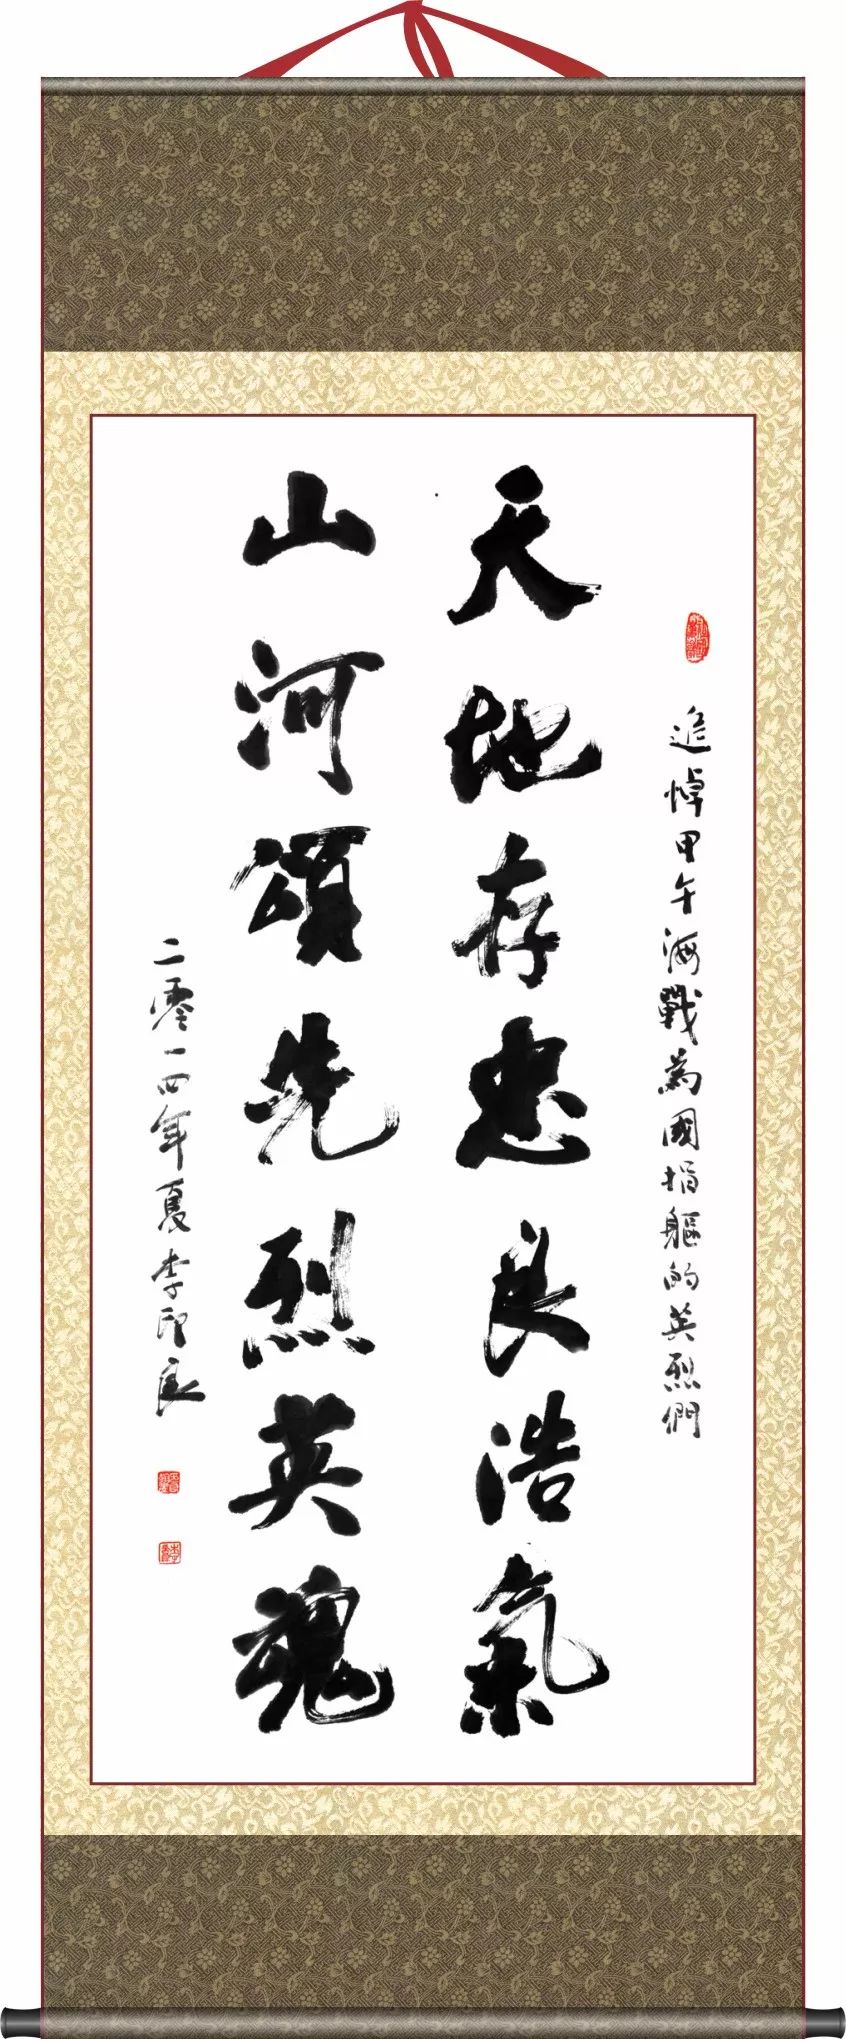 追悼甲午海戰為國捐軀的英烈們
天地存忠良浩氣
山河頌先烈英魂
二零一四年夏李印良